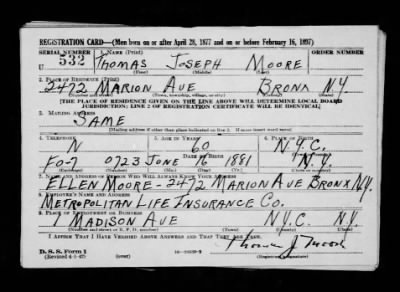 REGISTRATION CARD—(Men born on or after April 28, 1877 and on or before February 16, 1897)
SERIAL NUMBER 1. NAME (Print) ORDER NUMBER
U 532 THOMAS JOSEPH MOORE
(First) (Middle) (Last)
2. PLACE OF RESIDENCE (Print)
2472 MARION AVE BRONX N.Y.
(Number and street) (Town, township, village, or city) (County) (State)
[THE PLACE OF RESIDENCE GIVEN ON THE LINE ABOVE WILL DETERMINE LOCAL BOARD
JURISDICTION; LINE 2 OF REGISTRATION CERTIFICATE WILL BE IDENTICAL]
3. MAILING ADDRESS
SAME
[Mailing address if other than place indicated on line 2. If same insert word same]
4. TELEPHONE 5. AGE IN YEARS 6. PLACE OF BIRTH
N 60 N.Y.C.
DATE OF BIRTH
FO-7 0723 JUNE 16 1881 N.Y.
7. NAME AND ADDRESS OF PERSON WHO WILL ALWAYS KNOW YOUR ADDRESS
ELLEN MOORE-2472 MARION AVE BRONX N.Y.
8. EMPLOYER'S NAME AND ADDRESS
METROPOLITAN LIFE INSURANCE CO.
9. PLACE OF EMPLOYMENT OR BUSINESS
1 MADISON AVE N.Y.C. N.Y.
(Number and street or R. F. D. number) (Town) (County) (State)
I AFFIRM THAT I HAVE VERIFIED ABOVE ANSWERS AND THAT THEY ARE TRUE.
Thomas J Moore
D. S. S. Form 1
(Revised 4-1-42) (over)